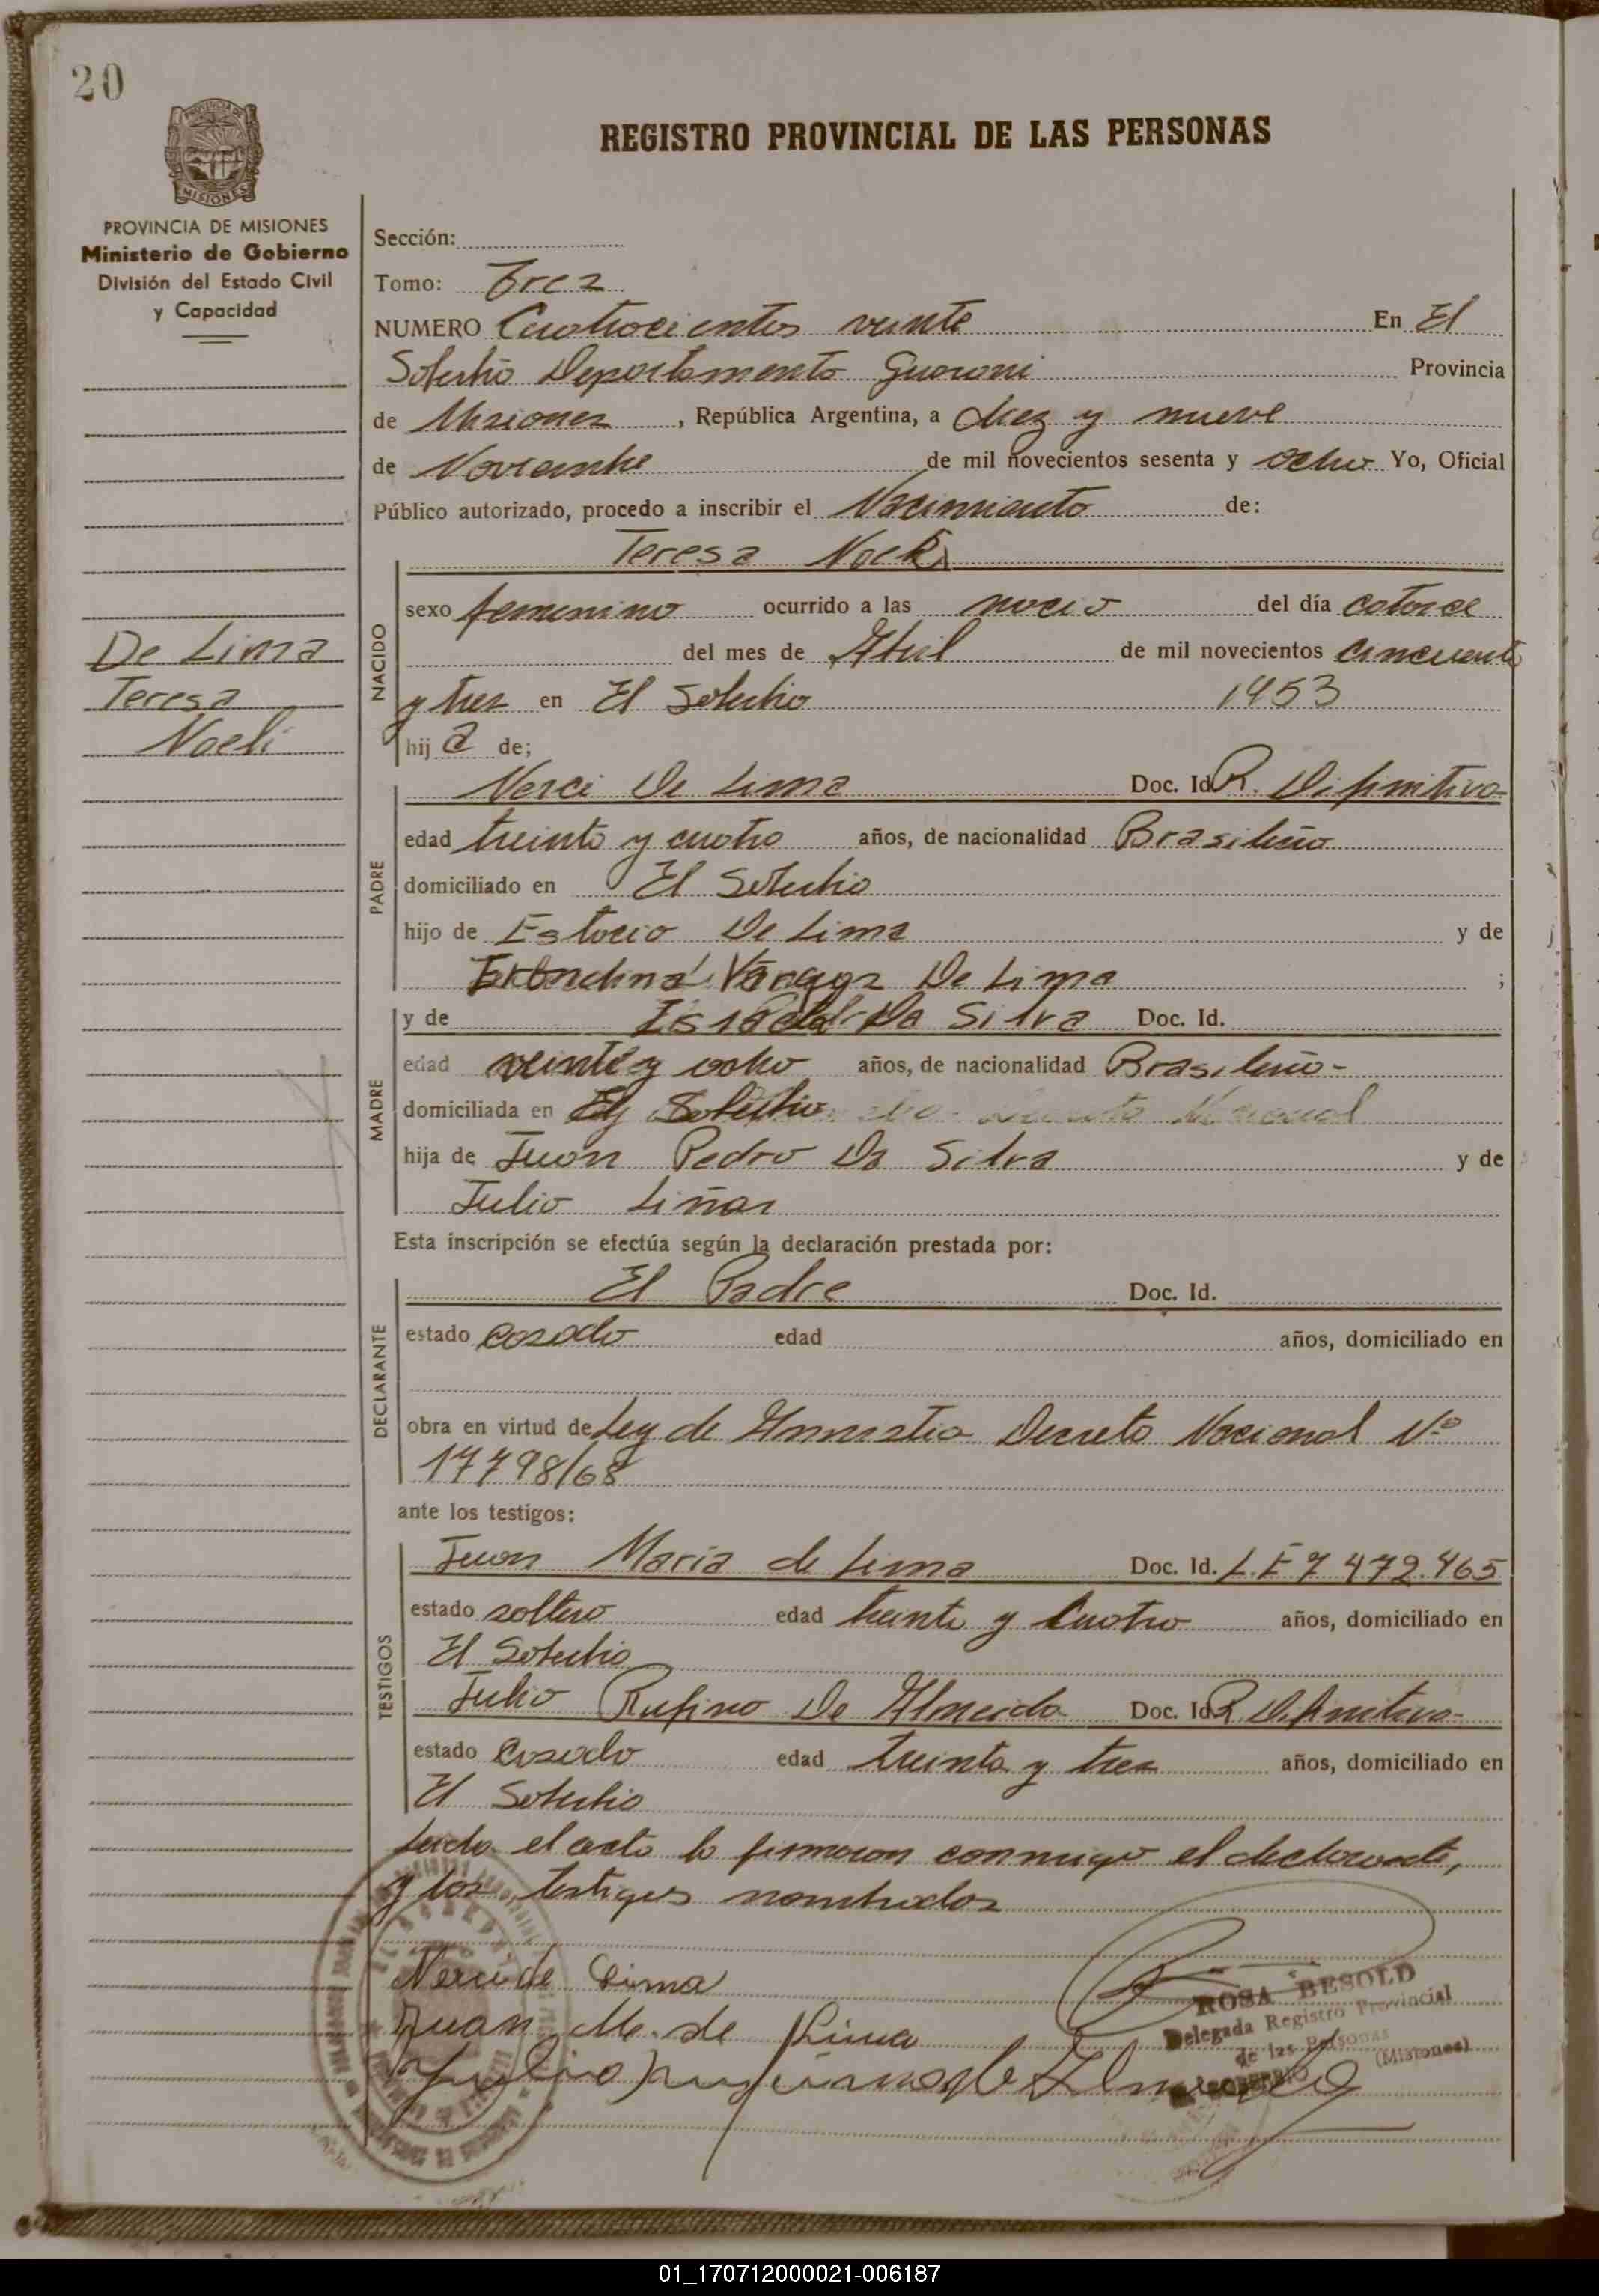 20
PROVINCIA DE
MISIONES
REGISTRO PROVINCIAL DE LAS PERSONAS
PROVINCIA DE MISIONES
Ministerio de Gobierno
División del Estado Civil
y Capacidad
Sección:
Tomo: Tres
NUMERO Cuatrocientos veinte En El
Soberbio Departamento Guarani Provincia
de Misiones, República Argentina, a diez y nueve
de Noviembre de mil novecientos sesenta y ocho Yo, Oficial
Público autorizado, procedo a inscribir el Nacimiento de:
Teresa Noeli
NACIDO
sexo femenino ocurrido a las del día catorce
del mes de Abril de mil novecientos cincuenta
y tres en El Soberbio 1953
hija de;
De Lima
Teresa
Noeli
PADRE
Nerci De Lima Doc. Id. R. Difinitiva-
edad treinta y cuatro años, de nacionalidad Brasileño
domiciliado en El Soberbio
hijo de Estacio De Lima y de
De Lima ;
MADRE
y de Da Silva Doc. Id.
edad veinte y ocho años, de nacionalidad Brasileño-
domiciliada en El Soberbio
hija de Juan Pedro Da Silva y de
Julia
Esta inscripción se efectúa según la declaración prestada por:
DECLARANTE
El Padre Doc. Id.
estado casado edad años, domiciliado en
obra en virtud de Ley de Amnistia Decreto Nacional Nº
17798/68
ante los testigos:
TESTIGOS
Juan Maria de Lima Doc. Id. L.E 7 472.465
estado soltero edad treinta y cuatro años, domiciliado en
El Soberbio
Julio Rufino De Almeida Doc. Id. R. Difinitiva-
estado casado edad treinta y tres años, domiciliado en
El Soberbio
Leido el acta lo firmaron conmigo el declarante,
y los testigos nombrados
Nerci de Lima
Juan M. de Lima
ROSA BESOLD
Delegada Registro Provincial
de las Personas
EL SOBERBIO (Misiones)
01_170712000021-006187